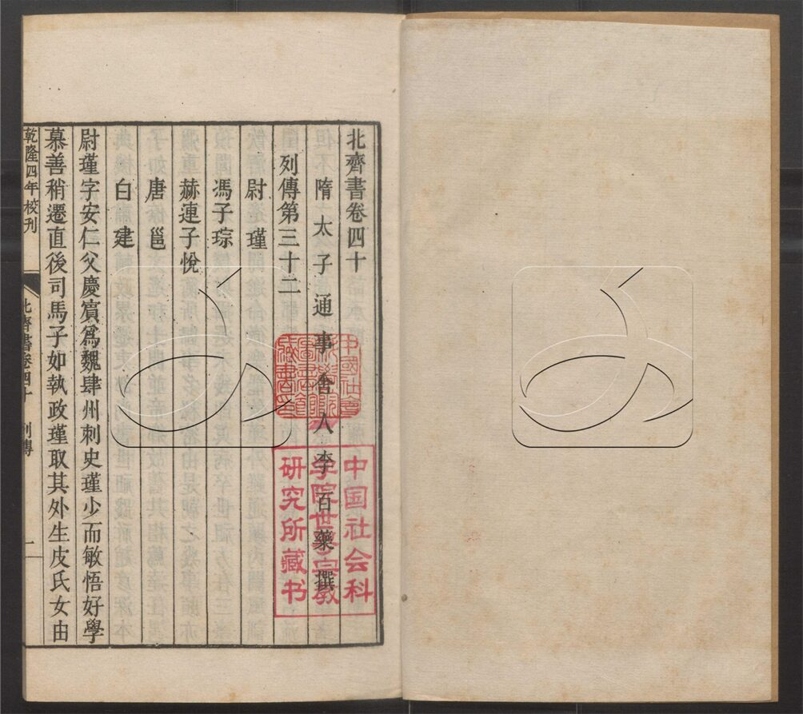 北齊書卷四十
隋太子通事舍人李百藥撰
列傳第三十二
尉瑾
馮子琮
赫連子悅
唐邕
白建
尉瑾字安仁父慶賔爲魏肆州刺史瑾少而敏悟好學
慕善稍遷直後司馬子如執政瑾取其外生皮氏女由
乾隆四年校刊
北齊書卷四十 列傳
一
中国社会科
学院世界宗教
研究所藏书